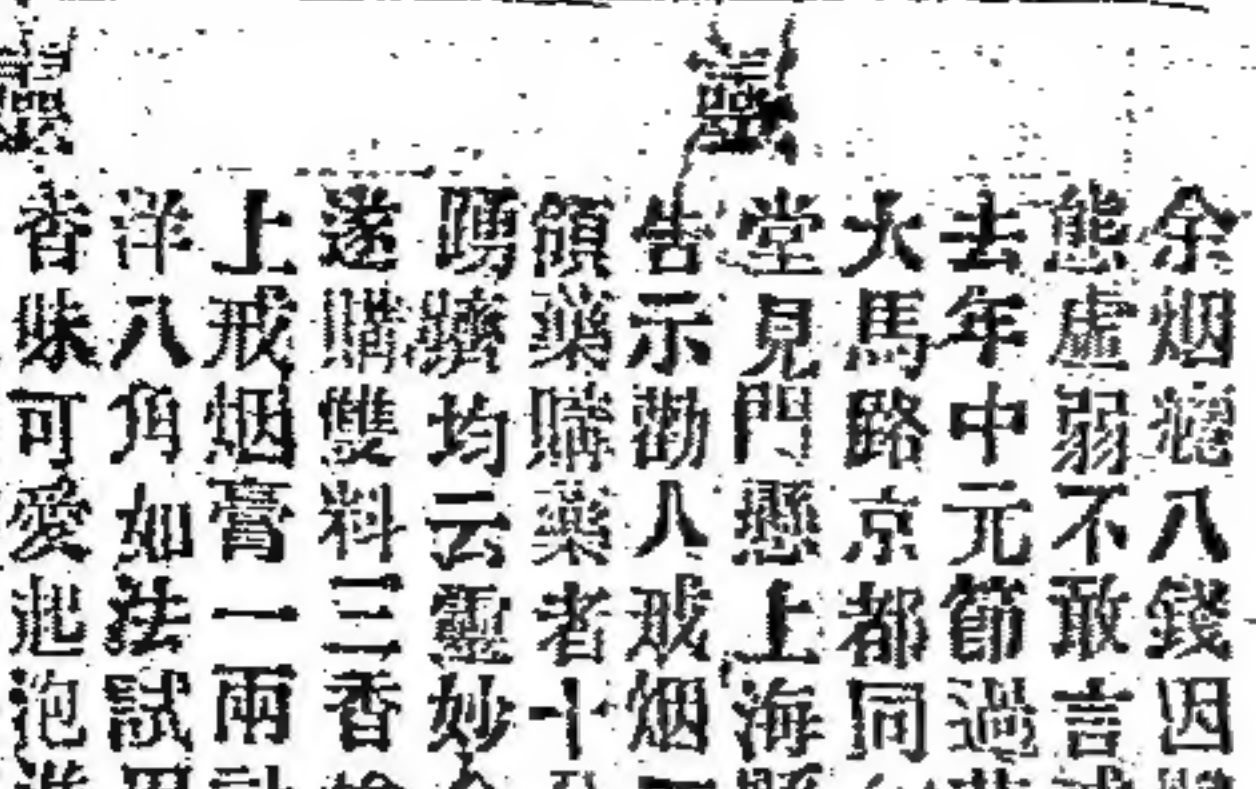 余烟癮八錢因
熊虛弱不敢言
去年中元節過
大馬路京都同
堂見門懸上海
告示勸人戒烟
領藥購藥者十
踴躋均云靈妙
遂購雙料三香
上戒烟膏一兩
洋八角如法試
香味可愛起泡